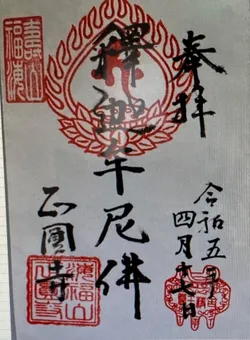 奉拝
令和五年
四月十七日
釋迦牟尼佛
壽山
福海
正圓寺